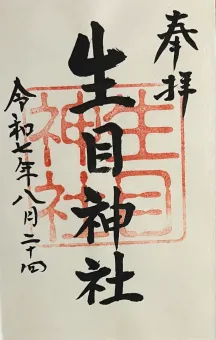 奉拝
生目神社
生目神社
令和七年八月二十四